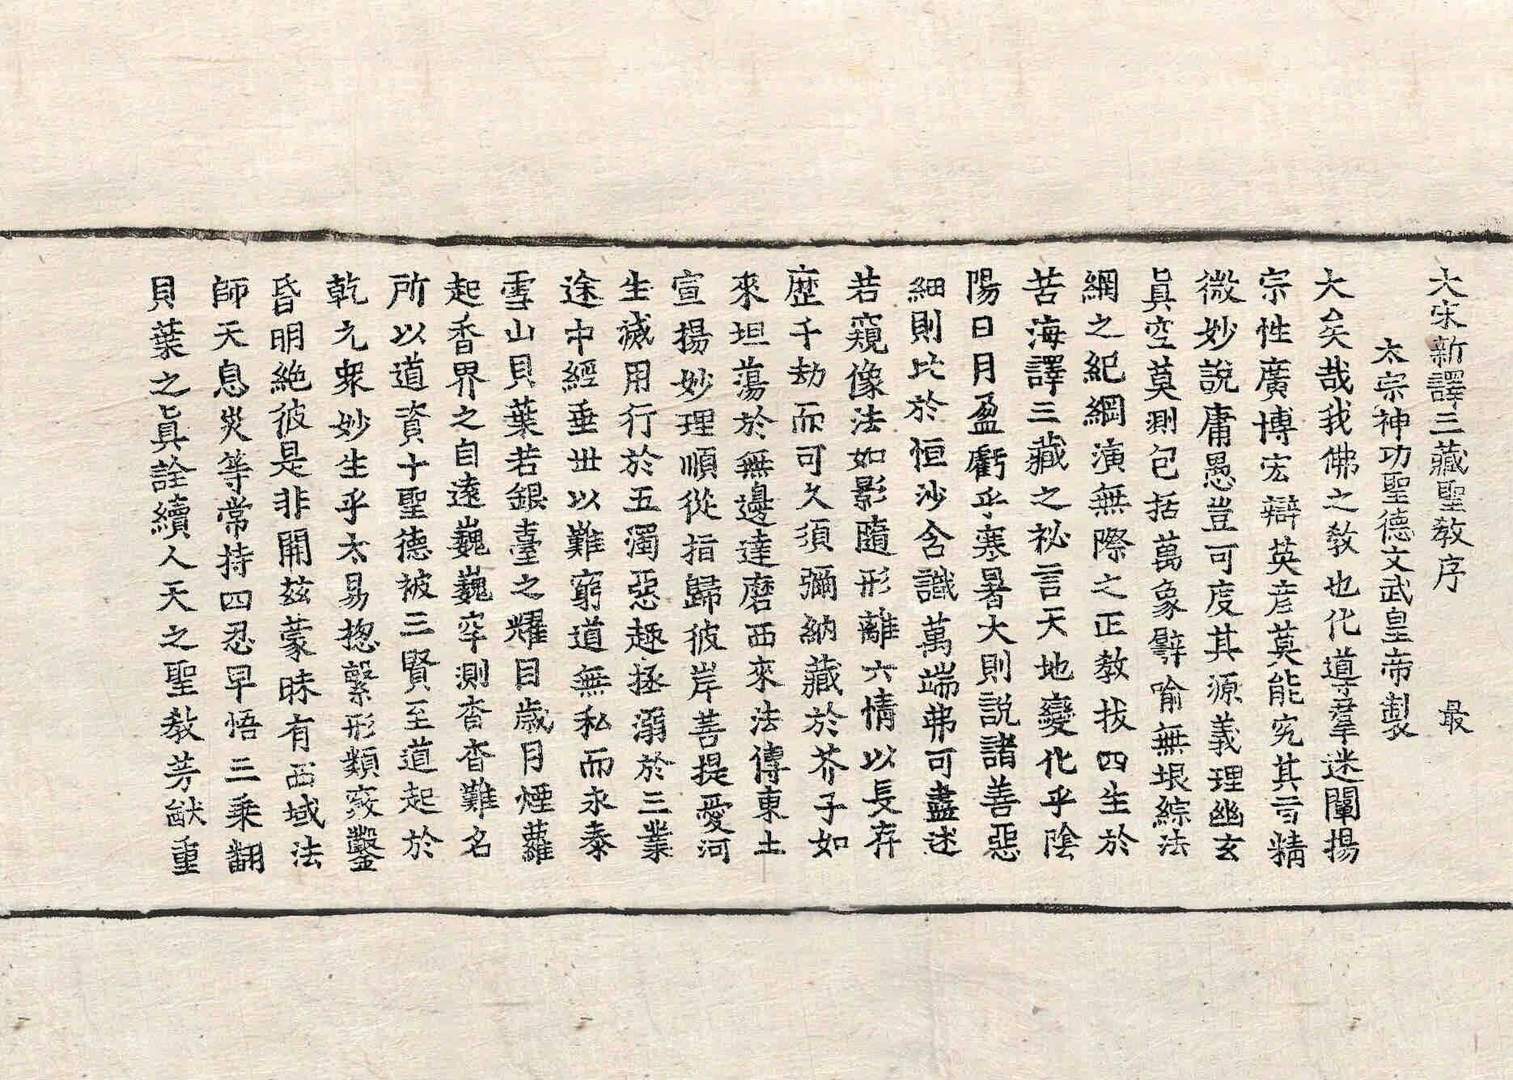 大宋新譯三藏聖教序　最
太宗神功聖德文武皇帝製
大矣哉我佛之教也化導羣迷闡揚
宗性廣博宏辯英彦莫能究其㫖精
微妙說庸愚豈可度其源義理幽玄
眞空莫測包括萬象譬喻無垠綜法
網之紀綱演無際之正教拔四生於
苦海譯三藏之祕言天地變化乎陰
陽日月盈虧乎寒暑大則說諸善惡
細則比於恒沙含識萬端弗可盡述
若窺像法如影隨形離六情以長存
歷千劫而可久須彌納藏於芥子如
來坦蕩於無邊達磨西來法傳東土
宣揚妙理順從指歸彼岸菩提愛河
生滅用行於五濁惡趣拯溺於三業
途中經垂丗以難窮道無私而永泰
雪山貝葉若銀臺之耀目歲月煙蘿
起香界之自遠巍巍罕測杳杳難名
所以道資十聖德被三賢至道起於
乾元衆妙生乎太易揔繫形類竅鑿
昏明絶彼是非開兹蒙昧有西域法
師天息災等常持四忍早悟三乘翻
貝葉之眞詮續人天之聖教芳猷重